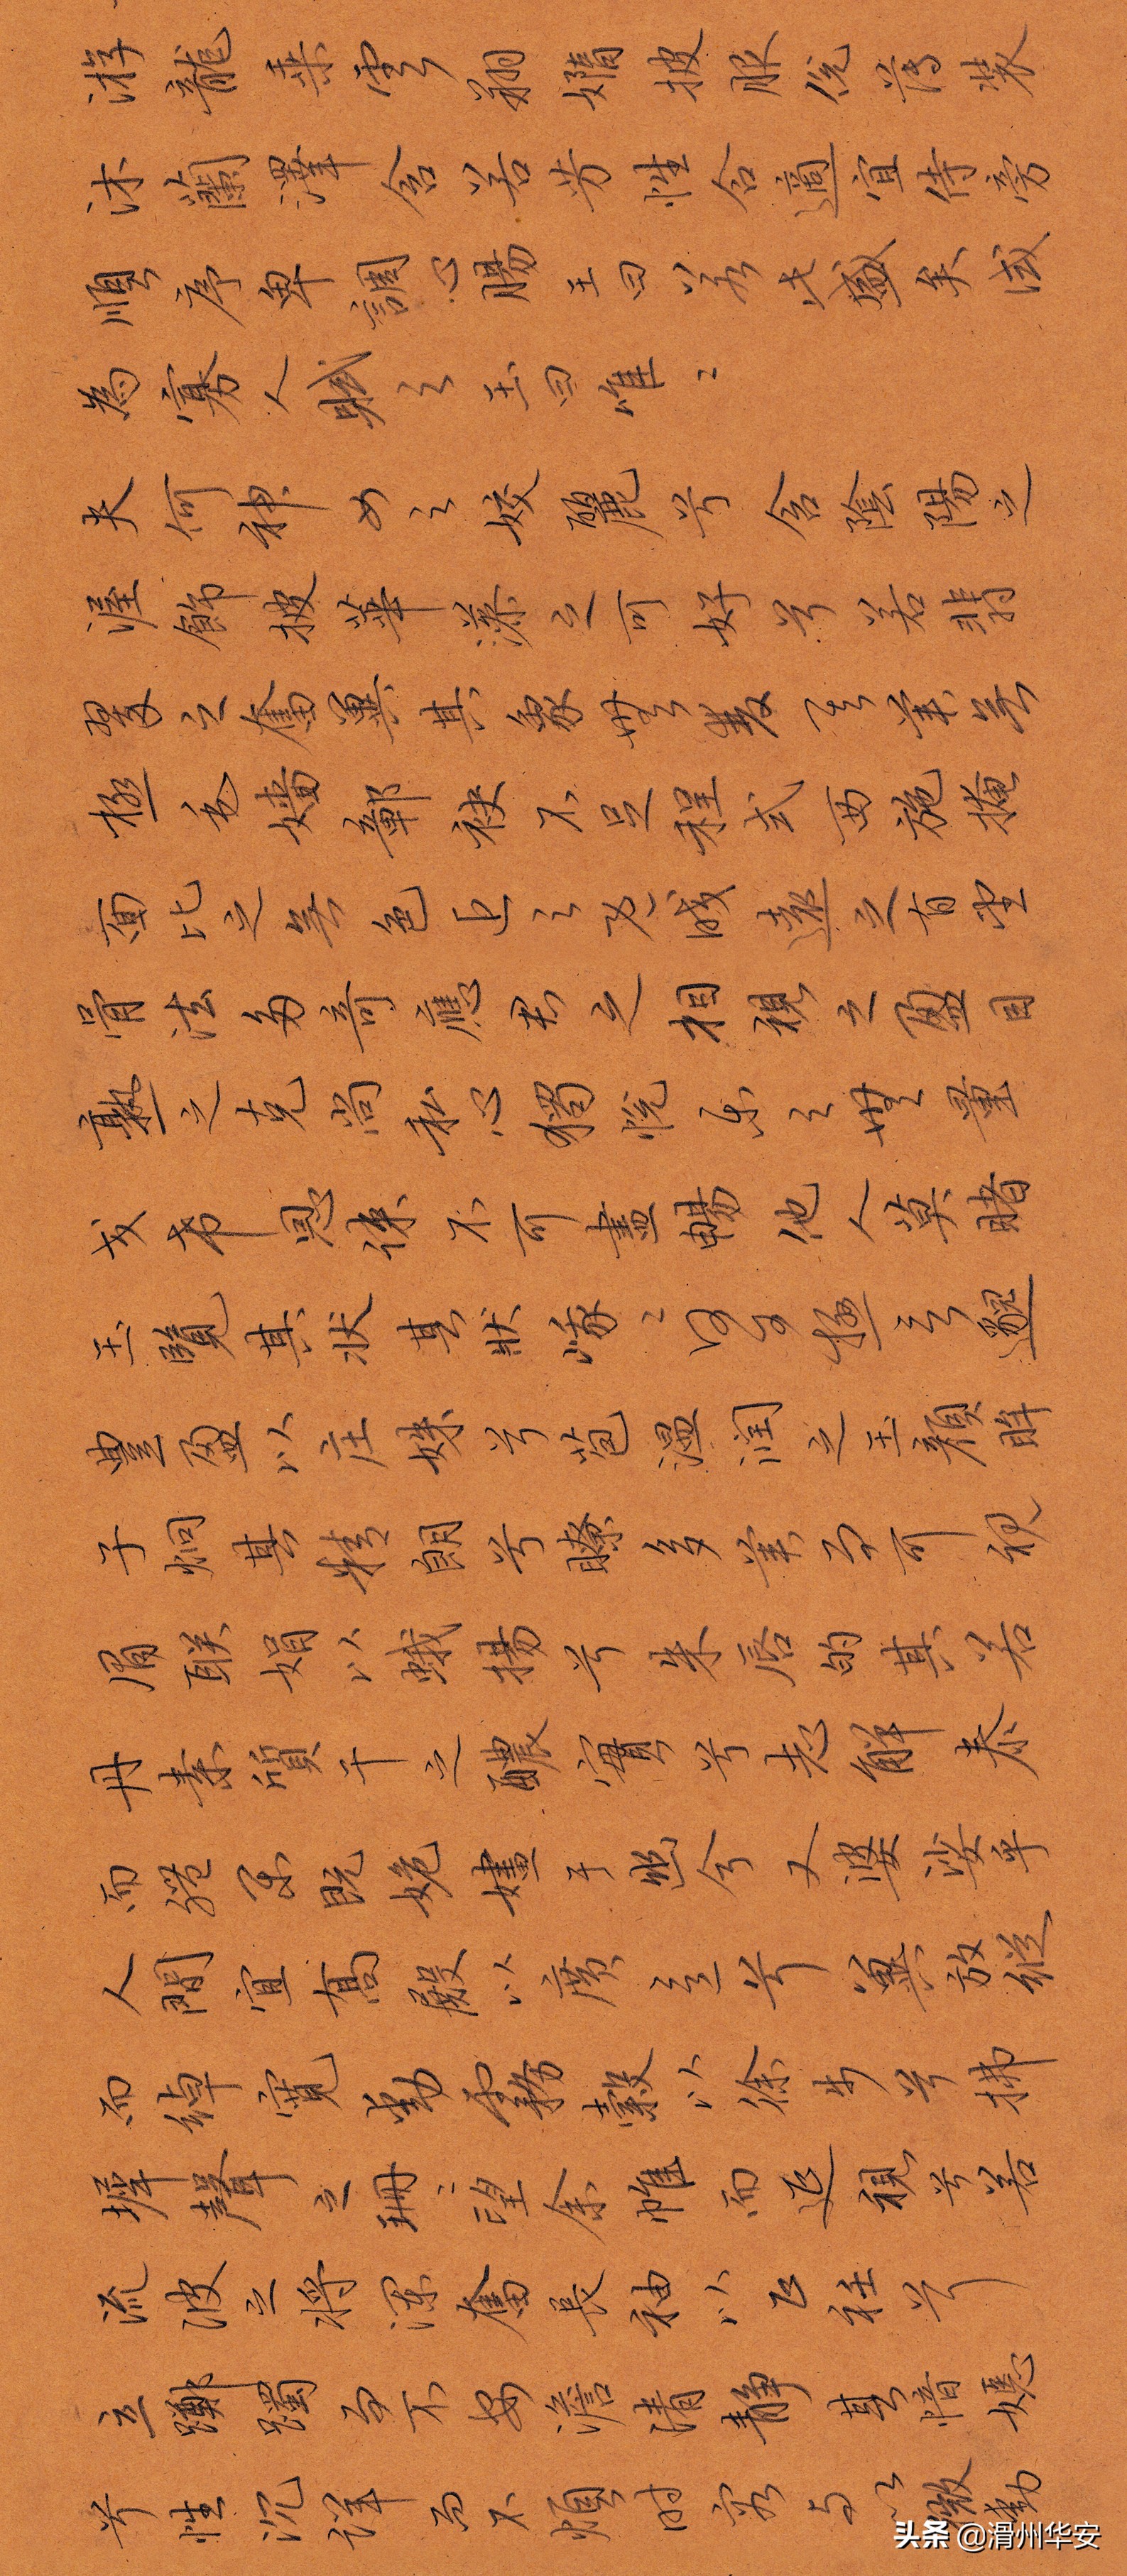 游龍乘雲翔嫷披服侻薄裝
沐蘭澤含若芳性合適宜侍旁
順序卑調心腸王曰若此盛矣試
為寡人賦之玉曰唯〻
夫何神女之姣麗兮含陰陽之
渥飾披華藻之可好兮若翡
翠之奮翼其象無雙其美無
極毛嬙鄣袂不足程式西施掩
面比之無色近之既妖遠之有望
骨法多奇應君之相視之盈目
孰之克尚私心獨悅樂之無量
交希恩疎不可盡暢他人莫睹
玉覽其狀其狀峨〻何可極言貌
豐盈以莊姝兮苞溫潤之玉顏眸
子炯其精朗兮瞭多美而可視
眉聯娟以蛾揚兮朱唇的其若
丹素質干之醲實兮志解泰
而體閑既姽嫿于幽兮又婆娑乎
人間宜高殿以廣意兮翼放縱
而綽寬動霧縠以徐步兮拂
墀聲之珊〻望余帷而延視兮若
流波之將瀾奮長袖以正衽兮
立躑躅而不安澹清靜其愔嫕
兮性沉詳而不煩時容與以微動
头条 @滑州华安